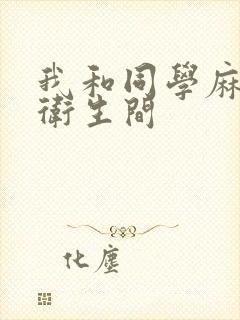 我和同學麻
衛生間
化塵